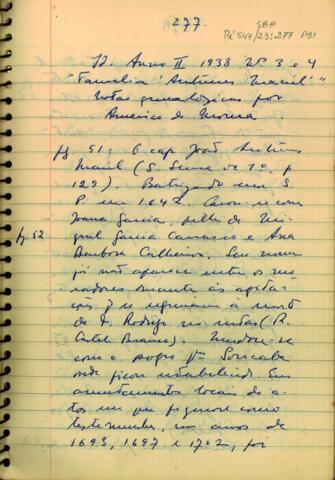 277.
SBH
Pi 547/23:277 P31
Id. Anno II 1938 Nº 3 e 4
"Familia 'Antunes Maciel'"
Notas genealogicas por
Americo de Moura.
pg. 51: O cap. João Antunes
Maciel (S. Leme vol. 1º, p.
129). Batizado em S.
P. em 1642. Casou-se com
Joana Garcia, filha de Mi-
guel Garcia Carrasco e Ana
pg. 52
Barbosa Calheiros. Seu nome
já não aparece entre os mo-
radores durante as agita-
ções q se seguiram à morte
de D. Rodrigo no sertão (R.
Castel Branco). Mudou-se
com o sogro pª Sorocaba
onde ficou estabelecido. Em
tos em que figurou como
testemunha, nos anos de
1693, 1697 e 1702, foi